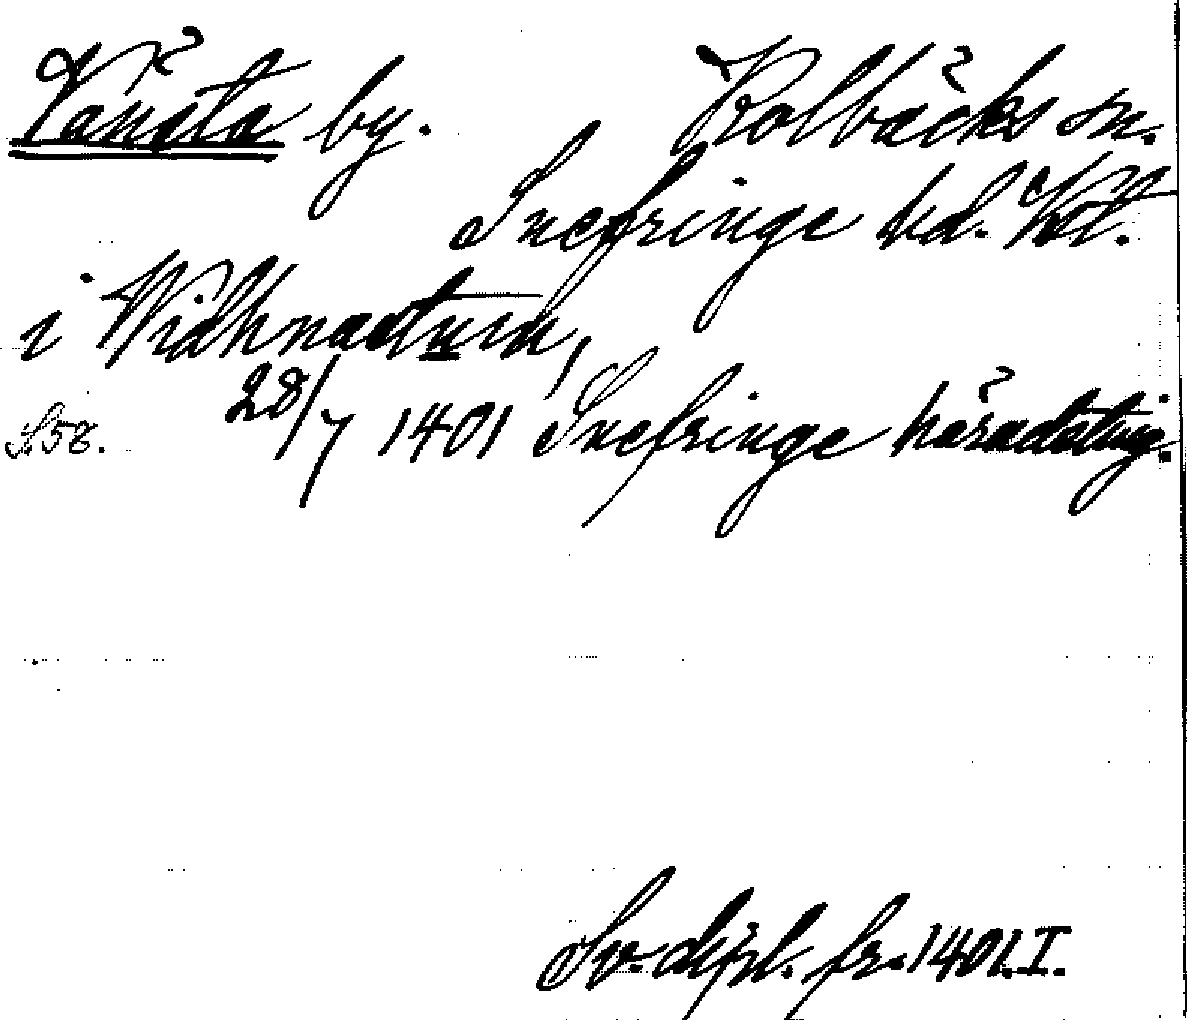 Vänsta by. Kolbäcks sn.
Snefringe hd. Vstl.
i Widhnastum,
S 58. 28/7 1401 Snefringe häradsting.
Sv. dipl. fr. 1401. I.